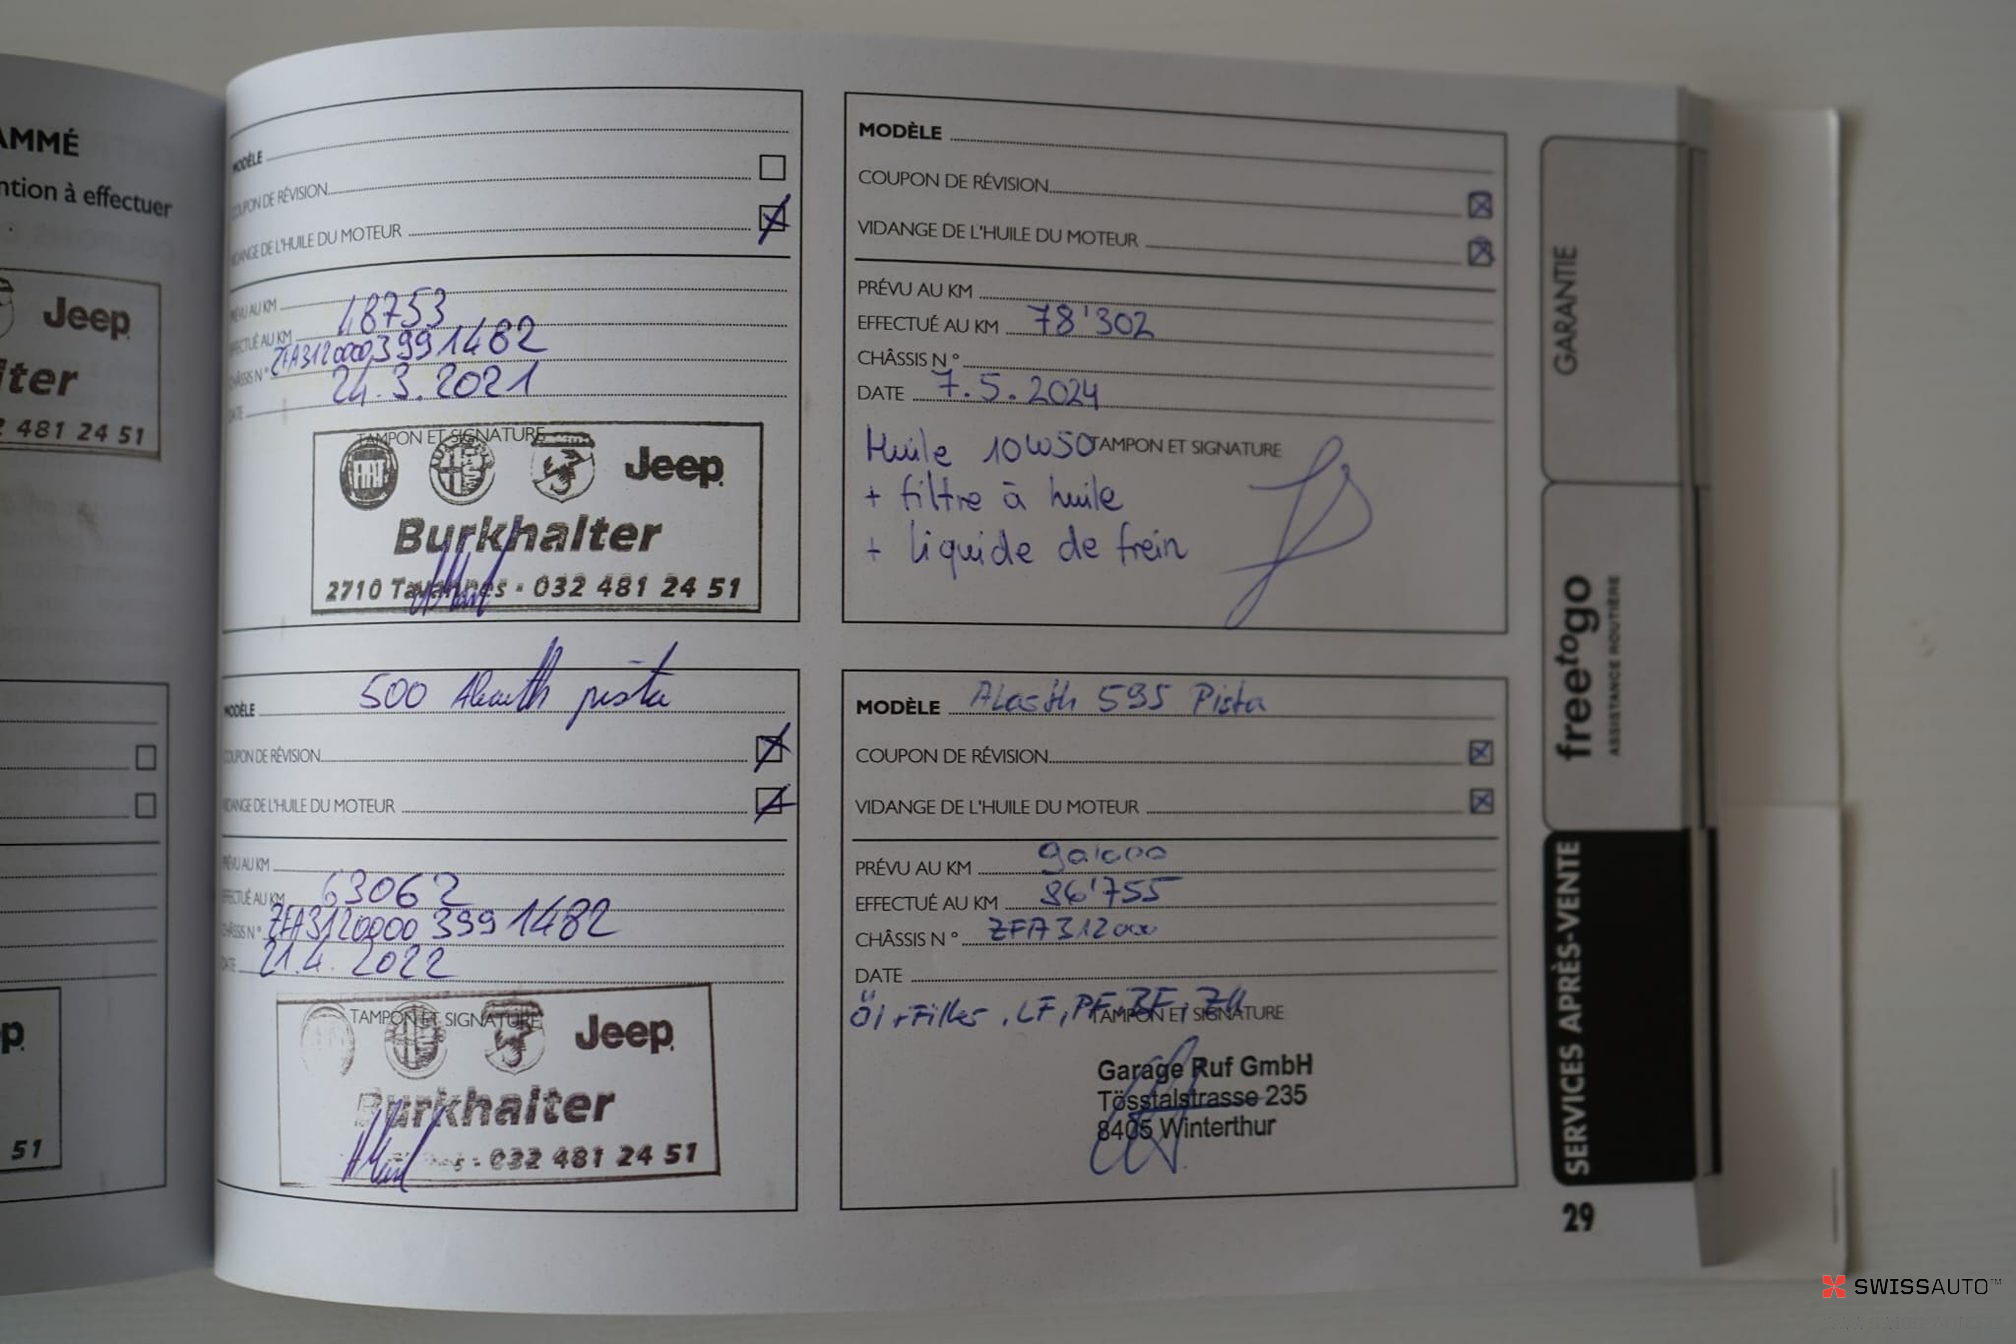 AMMÉ
ntion à effectuer
Jeep
lter
2 481 24 51
P
51
MODÈLE
COUPON DE RÉVISION
VIDANGE DE L'HUILE DU MOTEUR
PRÉVU AU KM
EFFECTUÉ AU KM 48753
CHÂSSIS N° ZFA31200003991482
DATE 24.3.2021
TAMPON ET SIGNATURE
FIAT
Jeep
Burkhalter
2710 Tavannes - 032 481 24 51
MODÈLE 500 Abarth pista
COUPON DE RÉVISION
VIDANGE DE L'HUILE DU MOTEUR
PRÉVU AU KM
EFFECTUÉ AU KM 63062
CHÂSSIS N° ZFA31200003991482
DATE 21.4.2022
TAMPON ET SIGNATURE
Jeep
Burkhalter
032 481 24 51
MODÈLE
COUPON DE RÉVISION
VIDANGE DE L'HUILE DU MOTEUR
PRÉVU AU KM
EFFECTUÉ AU KM 78'302
CHÂSSIS N°
DATE 7.5.2024
TAMPON ET SIGNATURE
Huile 10W50
+ filtre à huile
+ liquide de frein
MODÈLE Abarth 595 Pista
COUPON DE RÉVISION
VIDANGE DE L'HUILE DU MOTEUR
PRÉVU AU KM 90'000
EFFECTUÉ AU KM 86'755
CHÂSSIS N° ZFA312000
DATE
Öl+Filter, LF, PF, BF, ZK
TAMPON ET SIGNATURE
Garage Ruf GmbH
Tösstalstrasse 235
8405 Winterthur
GARANTIE
freetogo
ASSISTANCE ROUTIÈRE
SERVICES APRÈS-VENTE
29
SWISSAUTO™